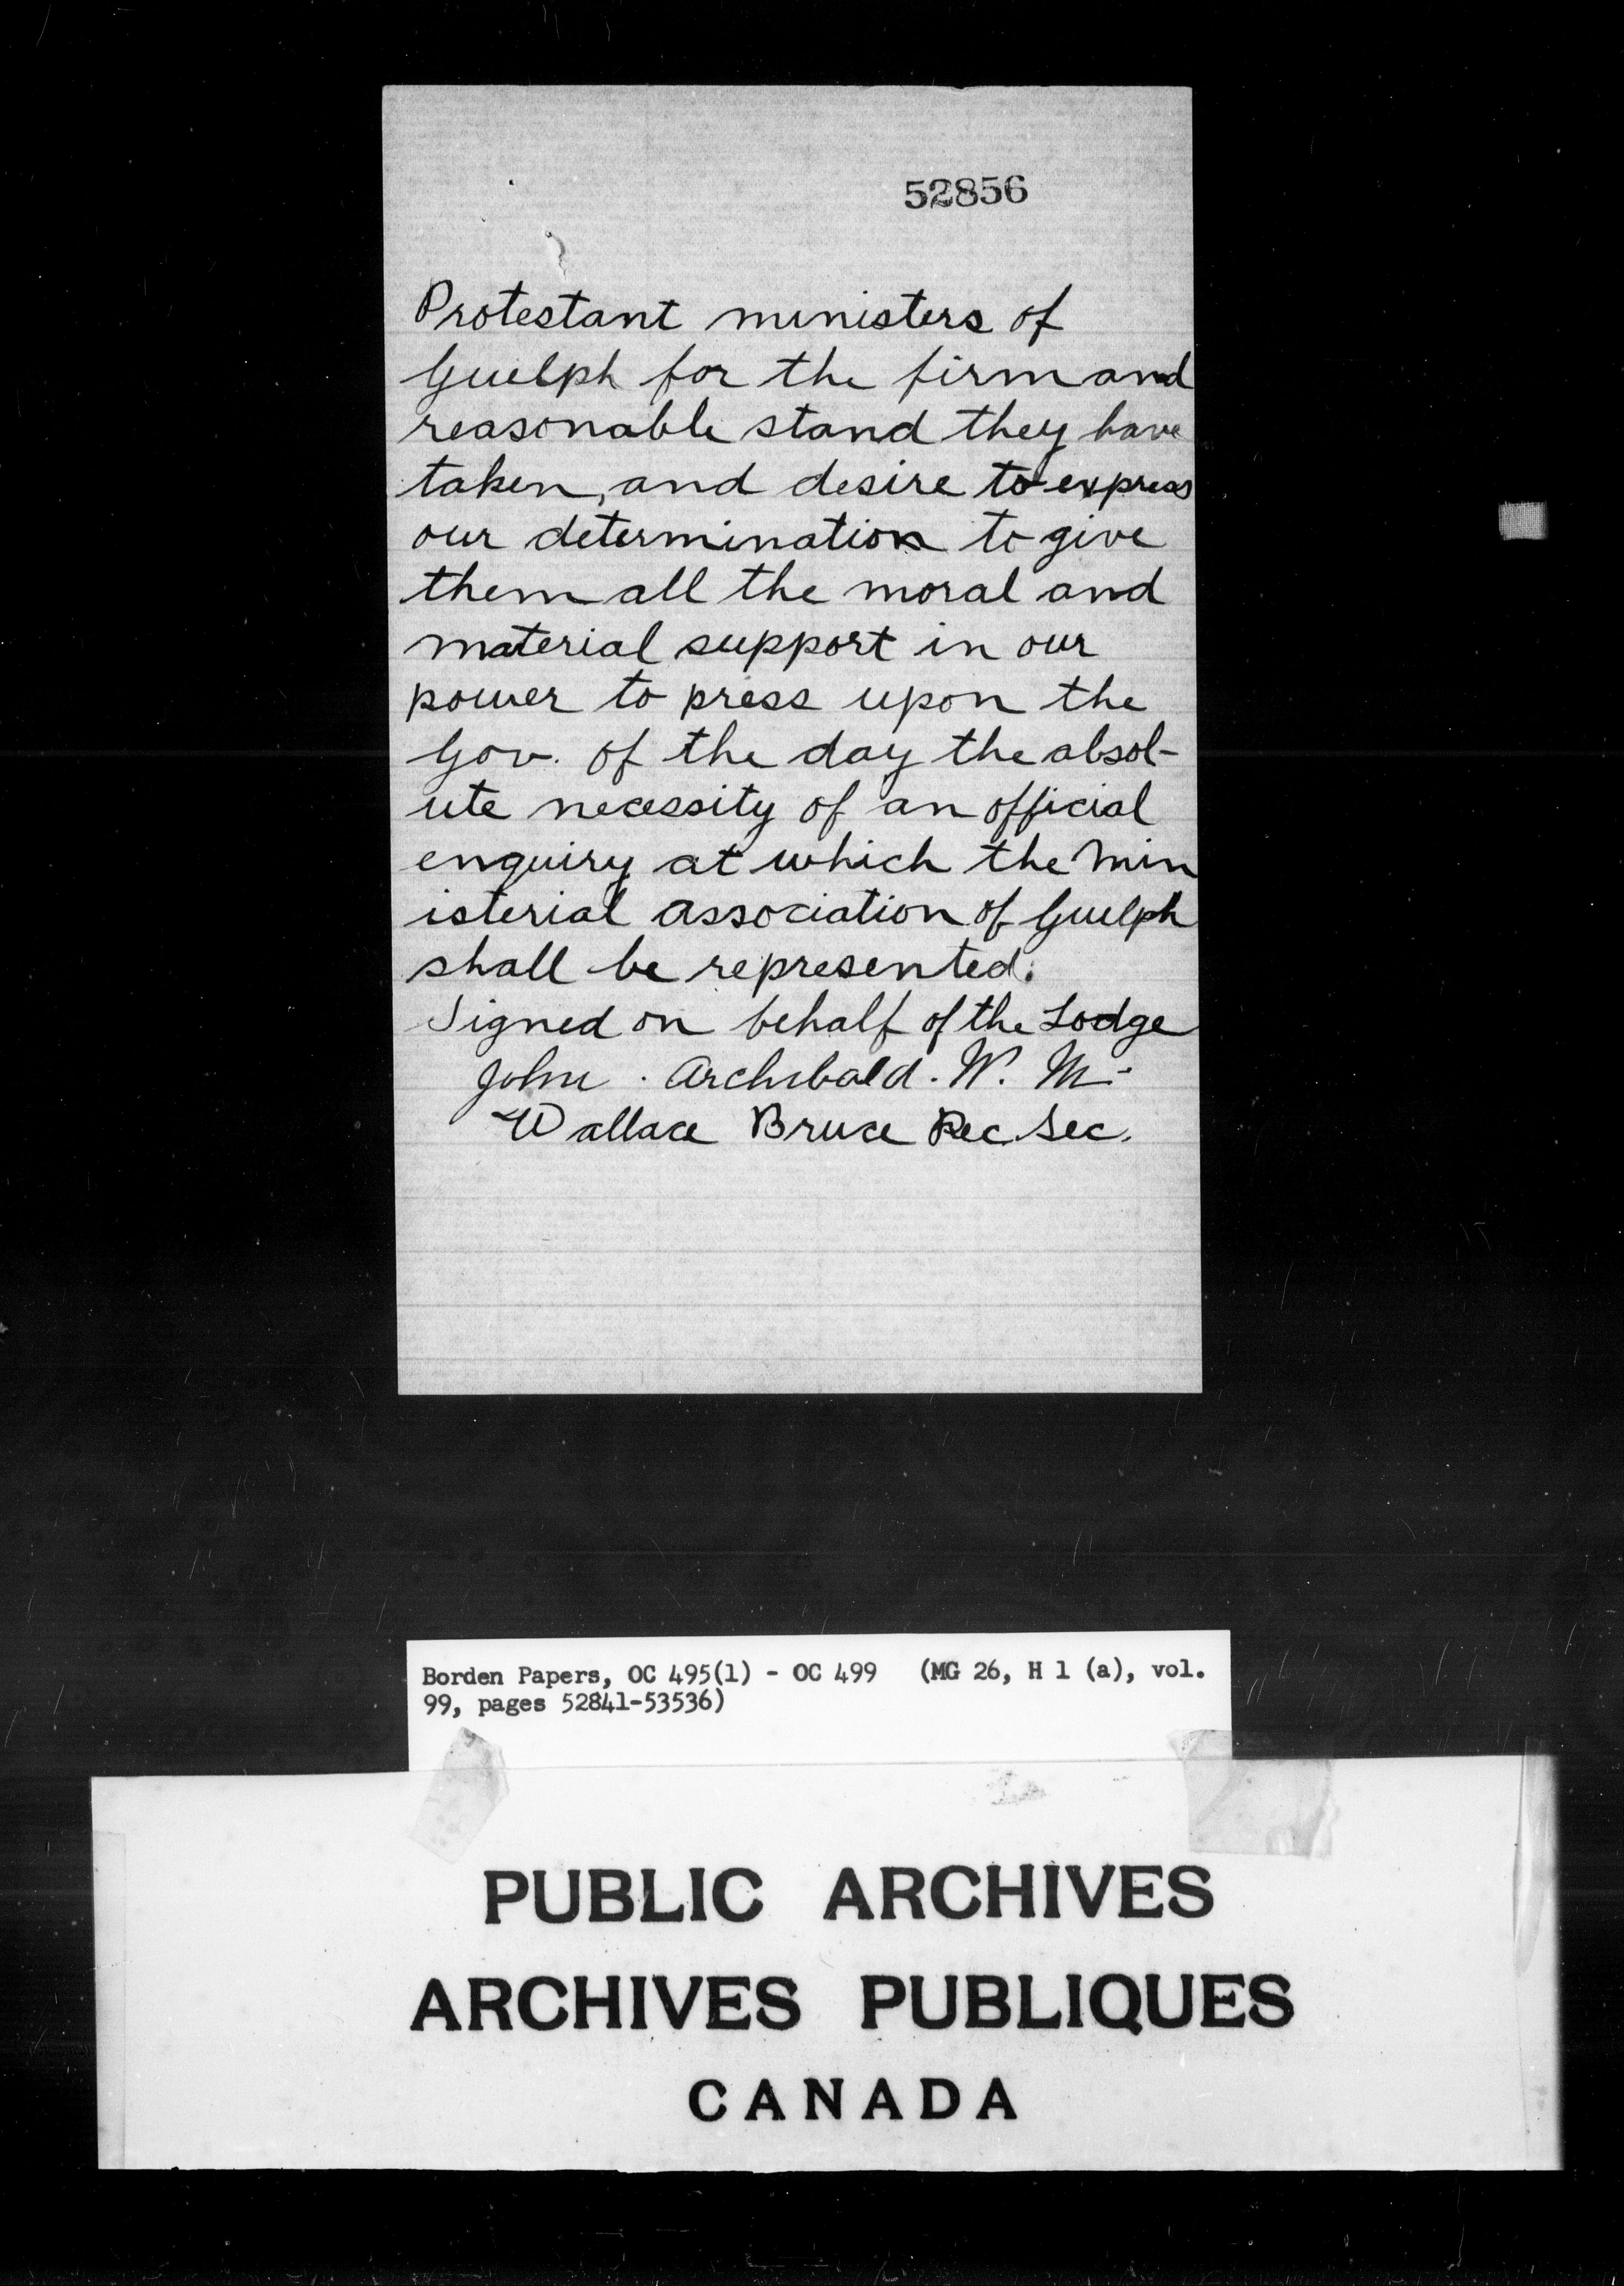 52856
Protestant ministers of
Guelph for the firm and
reasonable stand they have
taken, and desire to express
our determination to give
them all the moral and
material support in our
power to press upon the
Gov. of the day the absol-
ute necessity of an official
enquiry at which the Min
isterial association of Guelph
shall be represented.
Signed on behalf of the Lodge
John . Archibald . W. M.
Wallace Bruce Rec. Sec.
Borden Papers, OC 495(1) - OC 499 (MG 26, H 1 (a), vol.
99, pages 52841-53536)
PUBLIC ARCHIVES
ARCHIVES PUBLIQUES
CANADA